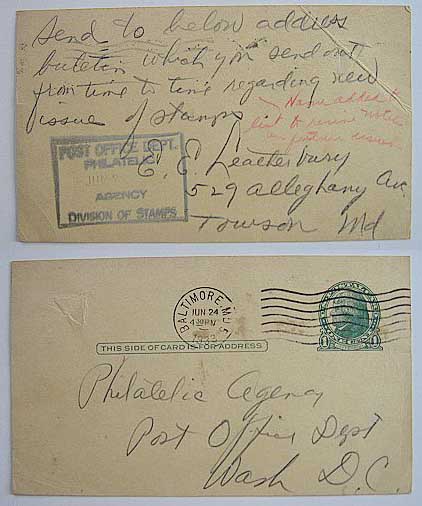 Send to below address
buletin which you send out
from time to time regarding new
issue of stamps
Name added to
list to receive notice
further issues
POST OFFICE DEPT.
PHILATELIC
JUN
AGENCY
DIVISION OF STAMPS
C. E. Leatherbury
529 alleghany Ave.
Towson Md
BALTIMORE, MD.
JUN 24
4 PM
1933
THIS SIDE OF CARD IS FOR ADDRESS
1 1
Philatelic Agency
Post Office Dept
Wash D.C.